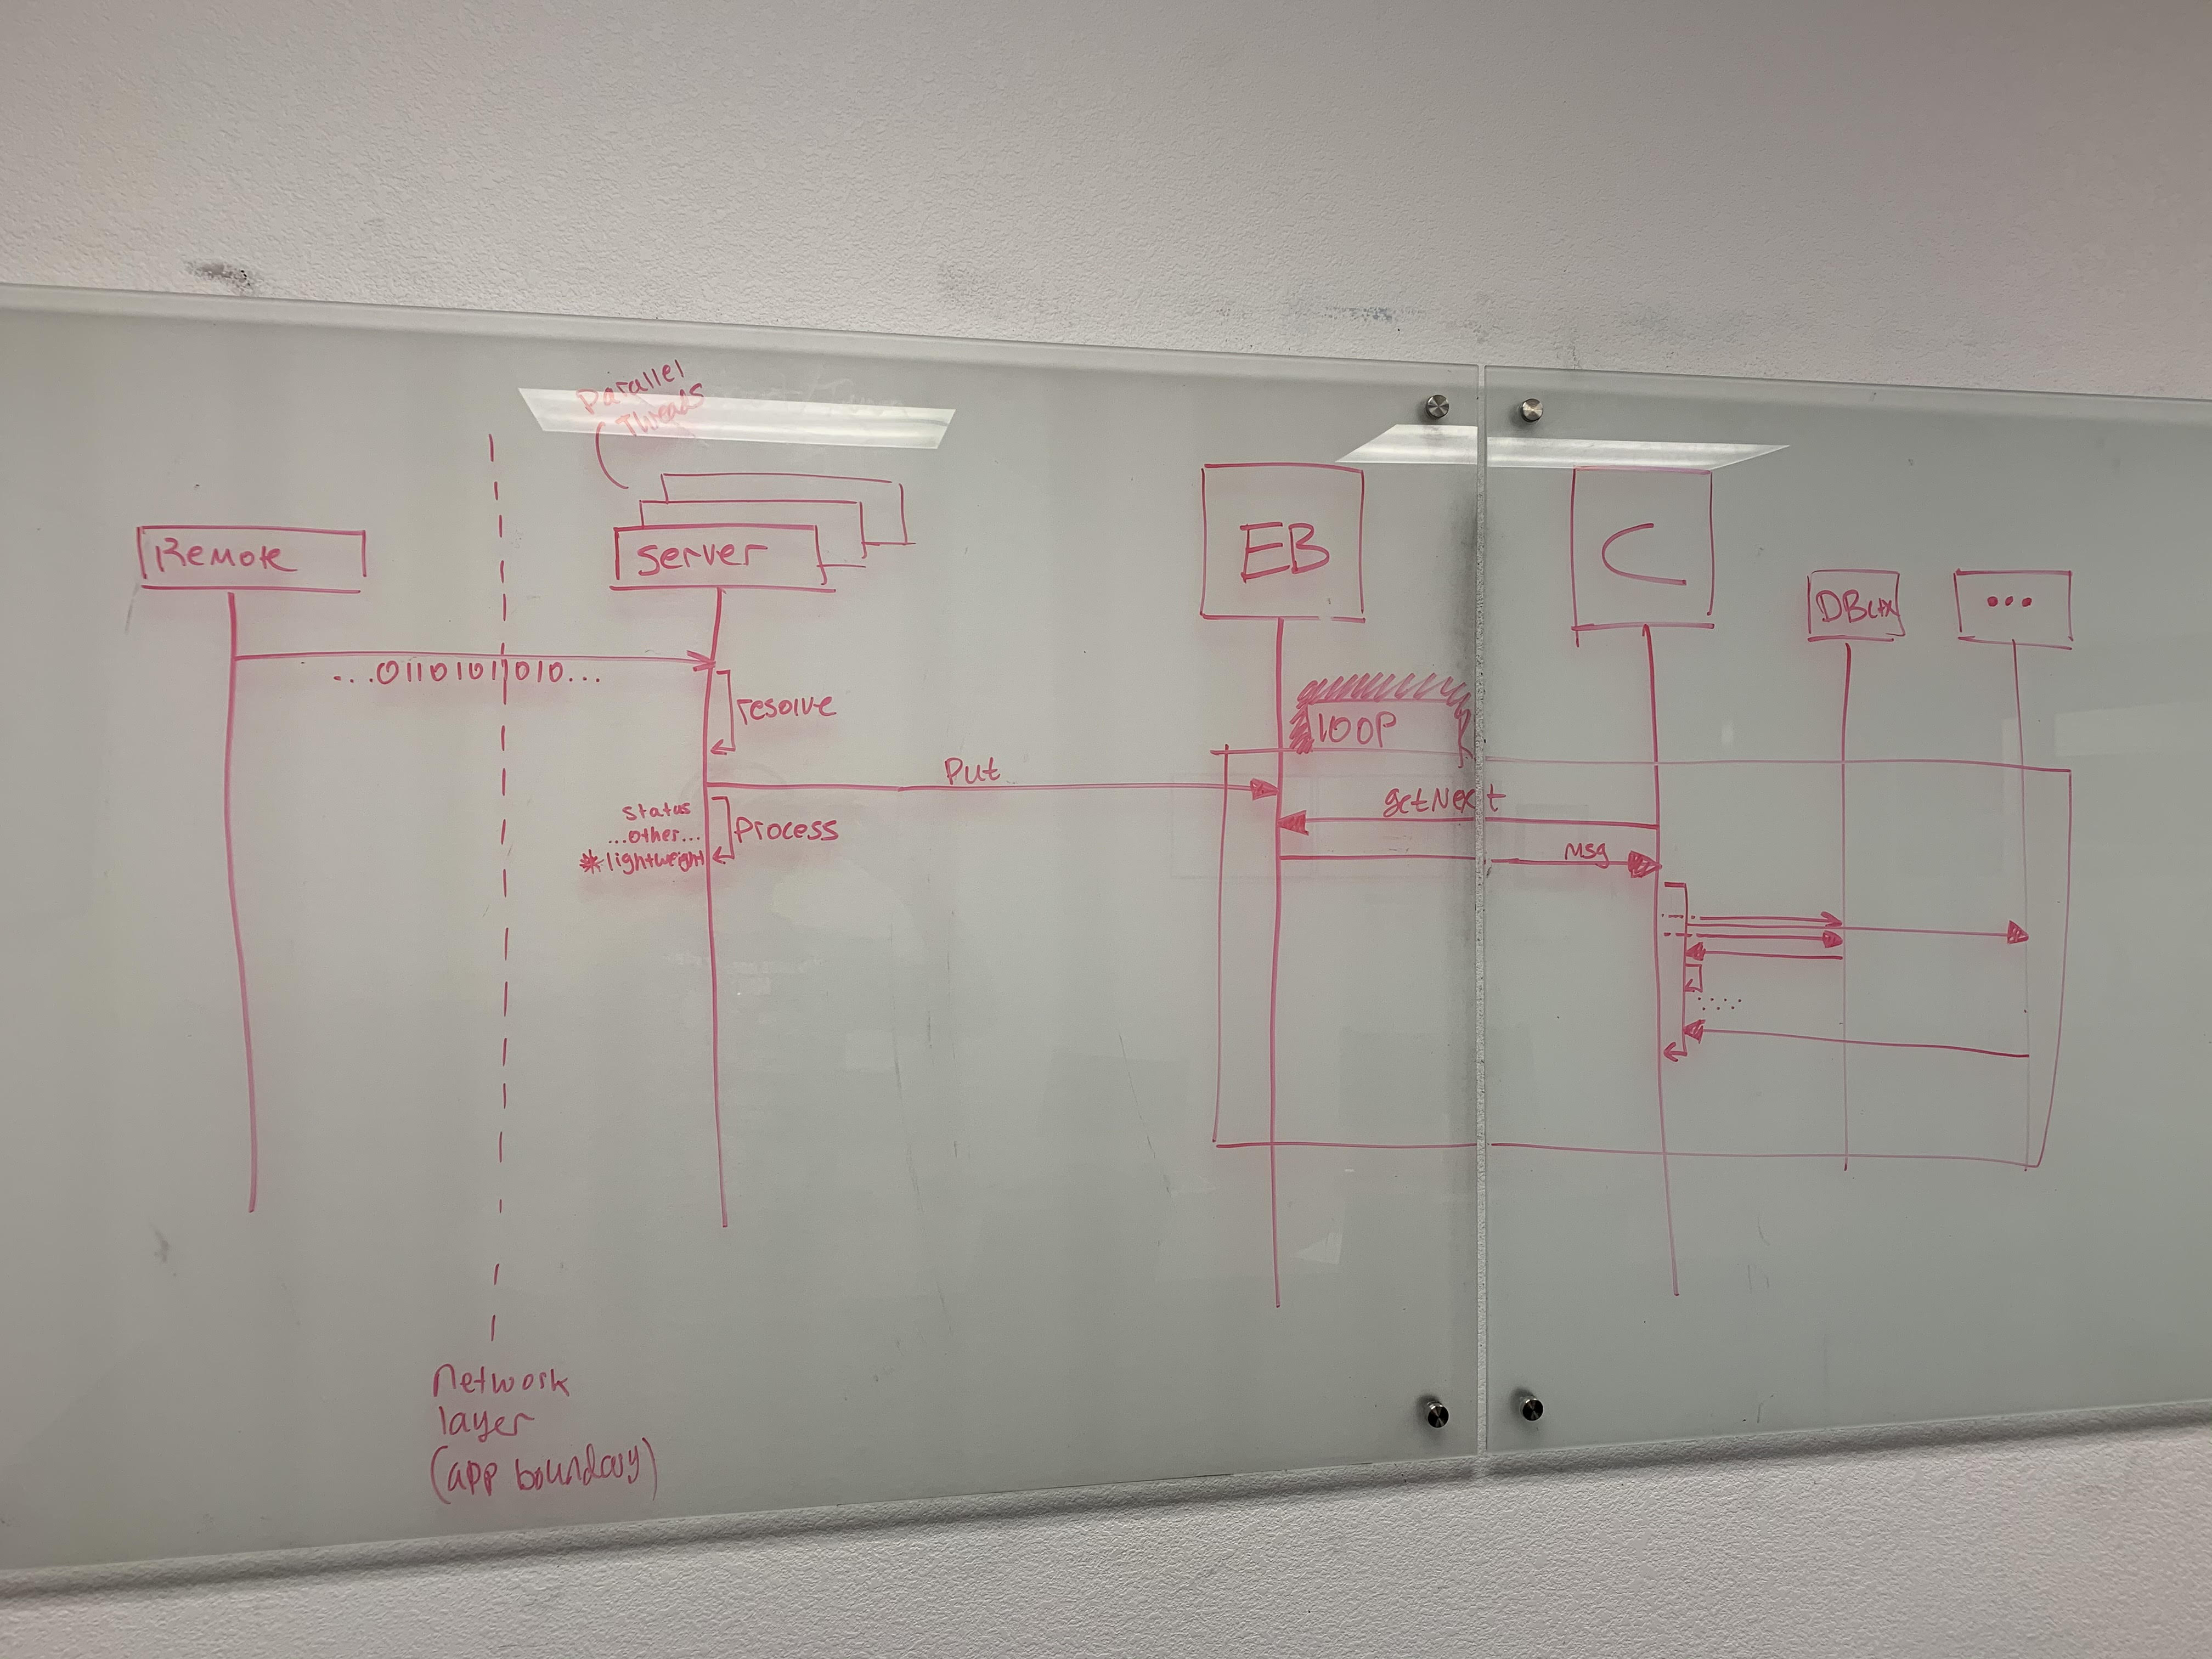 Parallel
Threads
Remote
Server
EB
C
DBctx
...
...01101011010...
resolve
loop
Put
getNext
status
...other...
*lightweight
Process
Msg
network
layer
(app boundary)